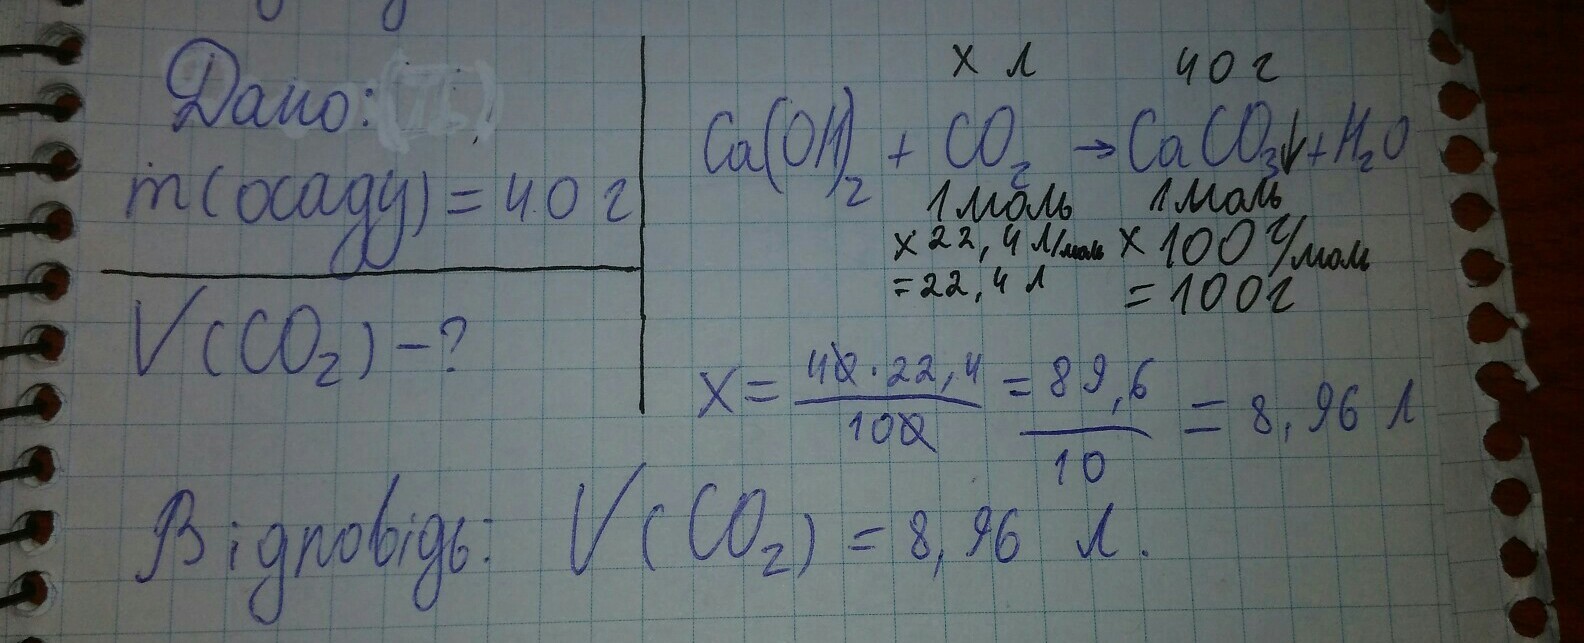 Дано:
m(осаду) = 40 г
V(CO₂) – ?
x л 40 г
Ca(OH)₂ + CO₂ → CaCO₃↓ + H₂O
1 моль 1 моль
x 22,4 л/моль x 100 г/моль
= 22,4 л = 100 г
x = 40 · 22,4 / 100 = 89,6 / 10 = 8,96 л
Відповідь: V(CO₂) = 8,96 л.